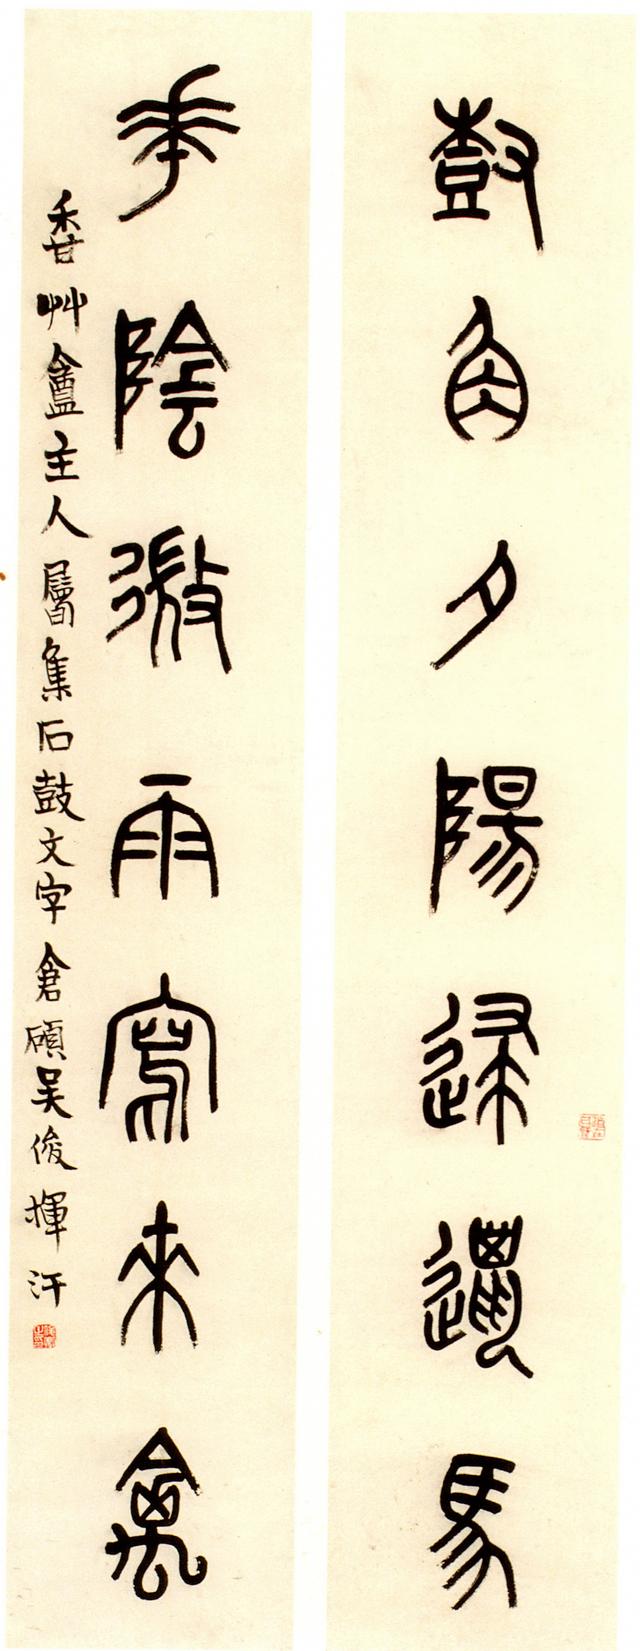 鼓角夕陽歸邋馬
華陰微雨寫來禽
香艸盦主人屬集石鼓文字倉碩吳俊揮汗